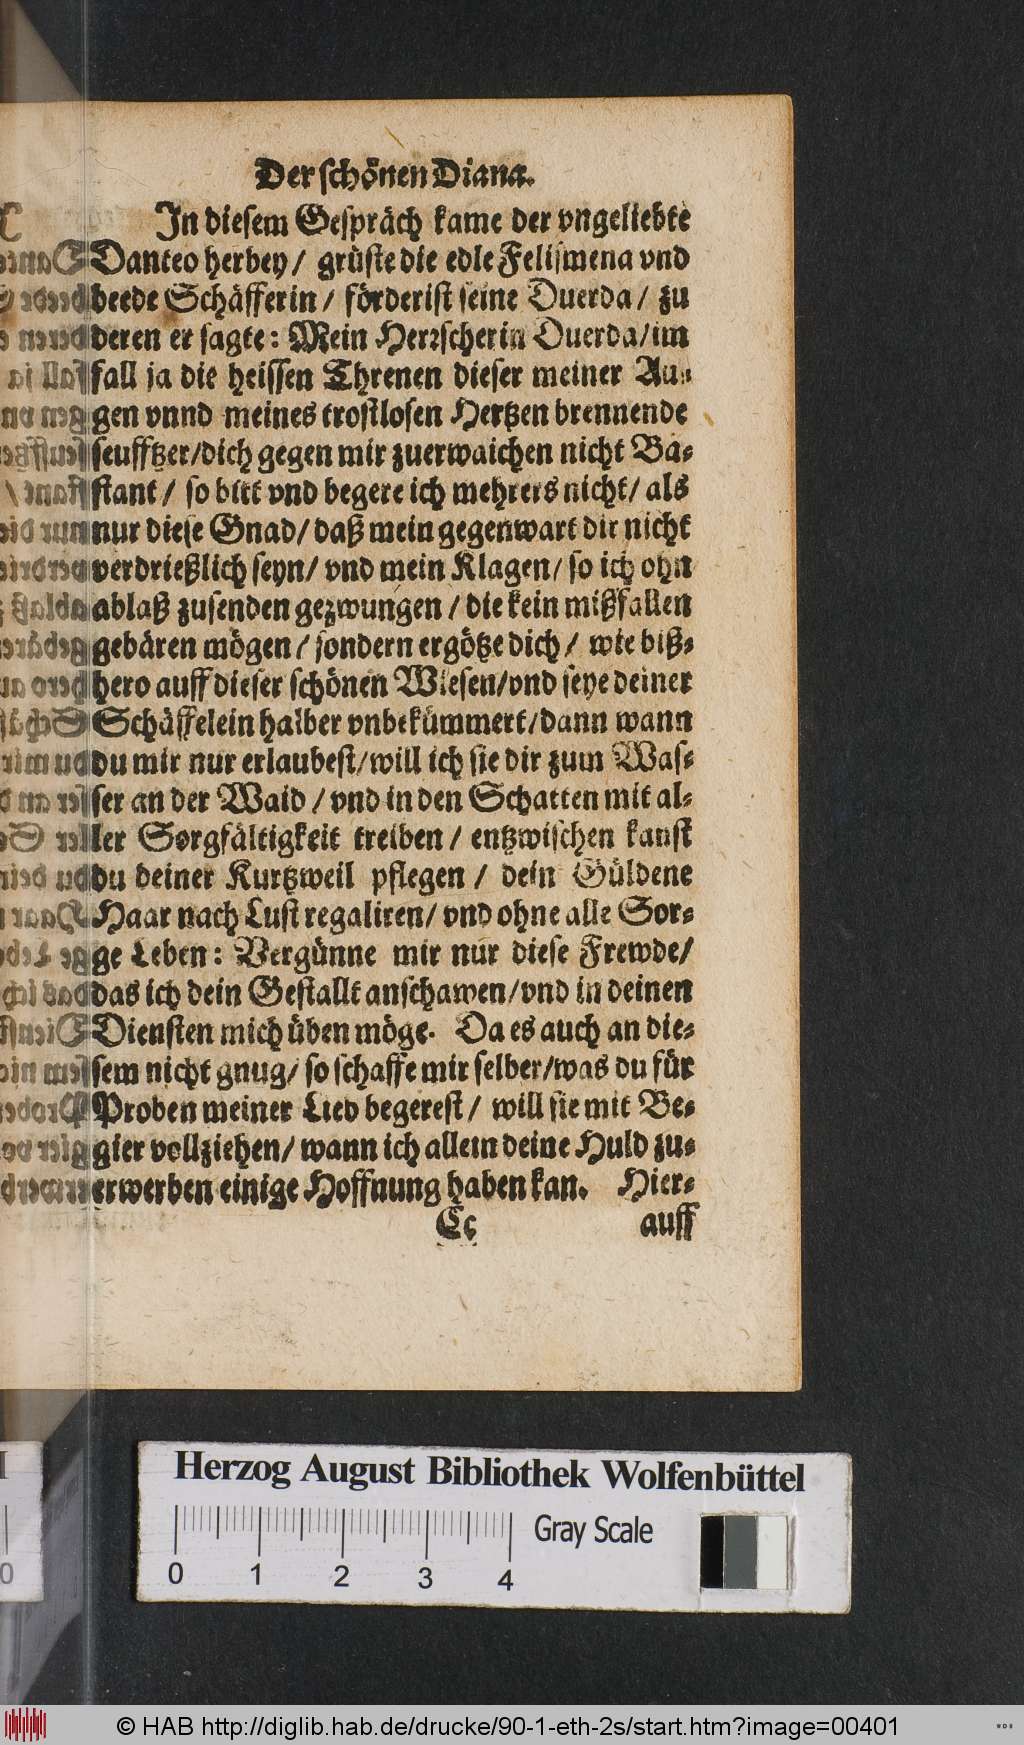 Der schönen Diana.
In diesem Gespräch kame der vngeliebte
Danteo herbey / grüste die edle Felismena vnd
beede Schäfferin / förderist seine Duerda / zu
deren er sagte: Mein Herrscherin Duerda / im
fall ja die heissen Threnen dieser meiner Au-
gen vnnd meines trostlosen Hertzen brennende
seufftzer / dich gegen mir zuerwaichen nicht Ba-
stant / so bitt vnd begere ich mehrers nicht / als
nur diese Gnad / daß mein gegenwart dir nicht
verdrießlich seyn / vnd mein Klagen / so ich ohn
ablaß zusenden gezwungen / die kein mißfallen
gebären mögen / sondern ergötze dich / wie biß-
hero auff dieser schönen Wiesen / vnd seye deiner
Schäffelein halber vnbekümmert / dann wann
du mir nur erlaubest / will ich sie dir zum Was-
ser an der Waid / vnd in den Schatten mit al-
ler Sorgfältigkeit treiben / entzwischen kanst
du deiner Kurtzweil pflegen / dein Güldene
Haar nach Lust regaliren / vnd ohne alle Sor-
ge Leben: Vergünne mir nur diese Frewde /
das ich dein Gestallt anschawen / vnd in deinen
Diensten mich üben möge. Da es auch an die-
sem nicht gnug / so schaffe mir selber / was du für
Proben meiner Lieb begerest / will sie mit Be-
gier vollziehen / wann ich allein deine Huld zu-
erwerben einige Hoffnung haben kan. Hier-
Cc auff
Herzog August Bibliothek Wolfenbüttel
Gray Scale
0 1 2 3 4
© HAB http://diglib.hab.de/drucke/90-1-eth-2s/start.htm?image=00401